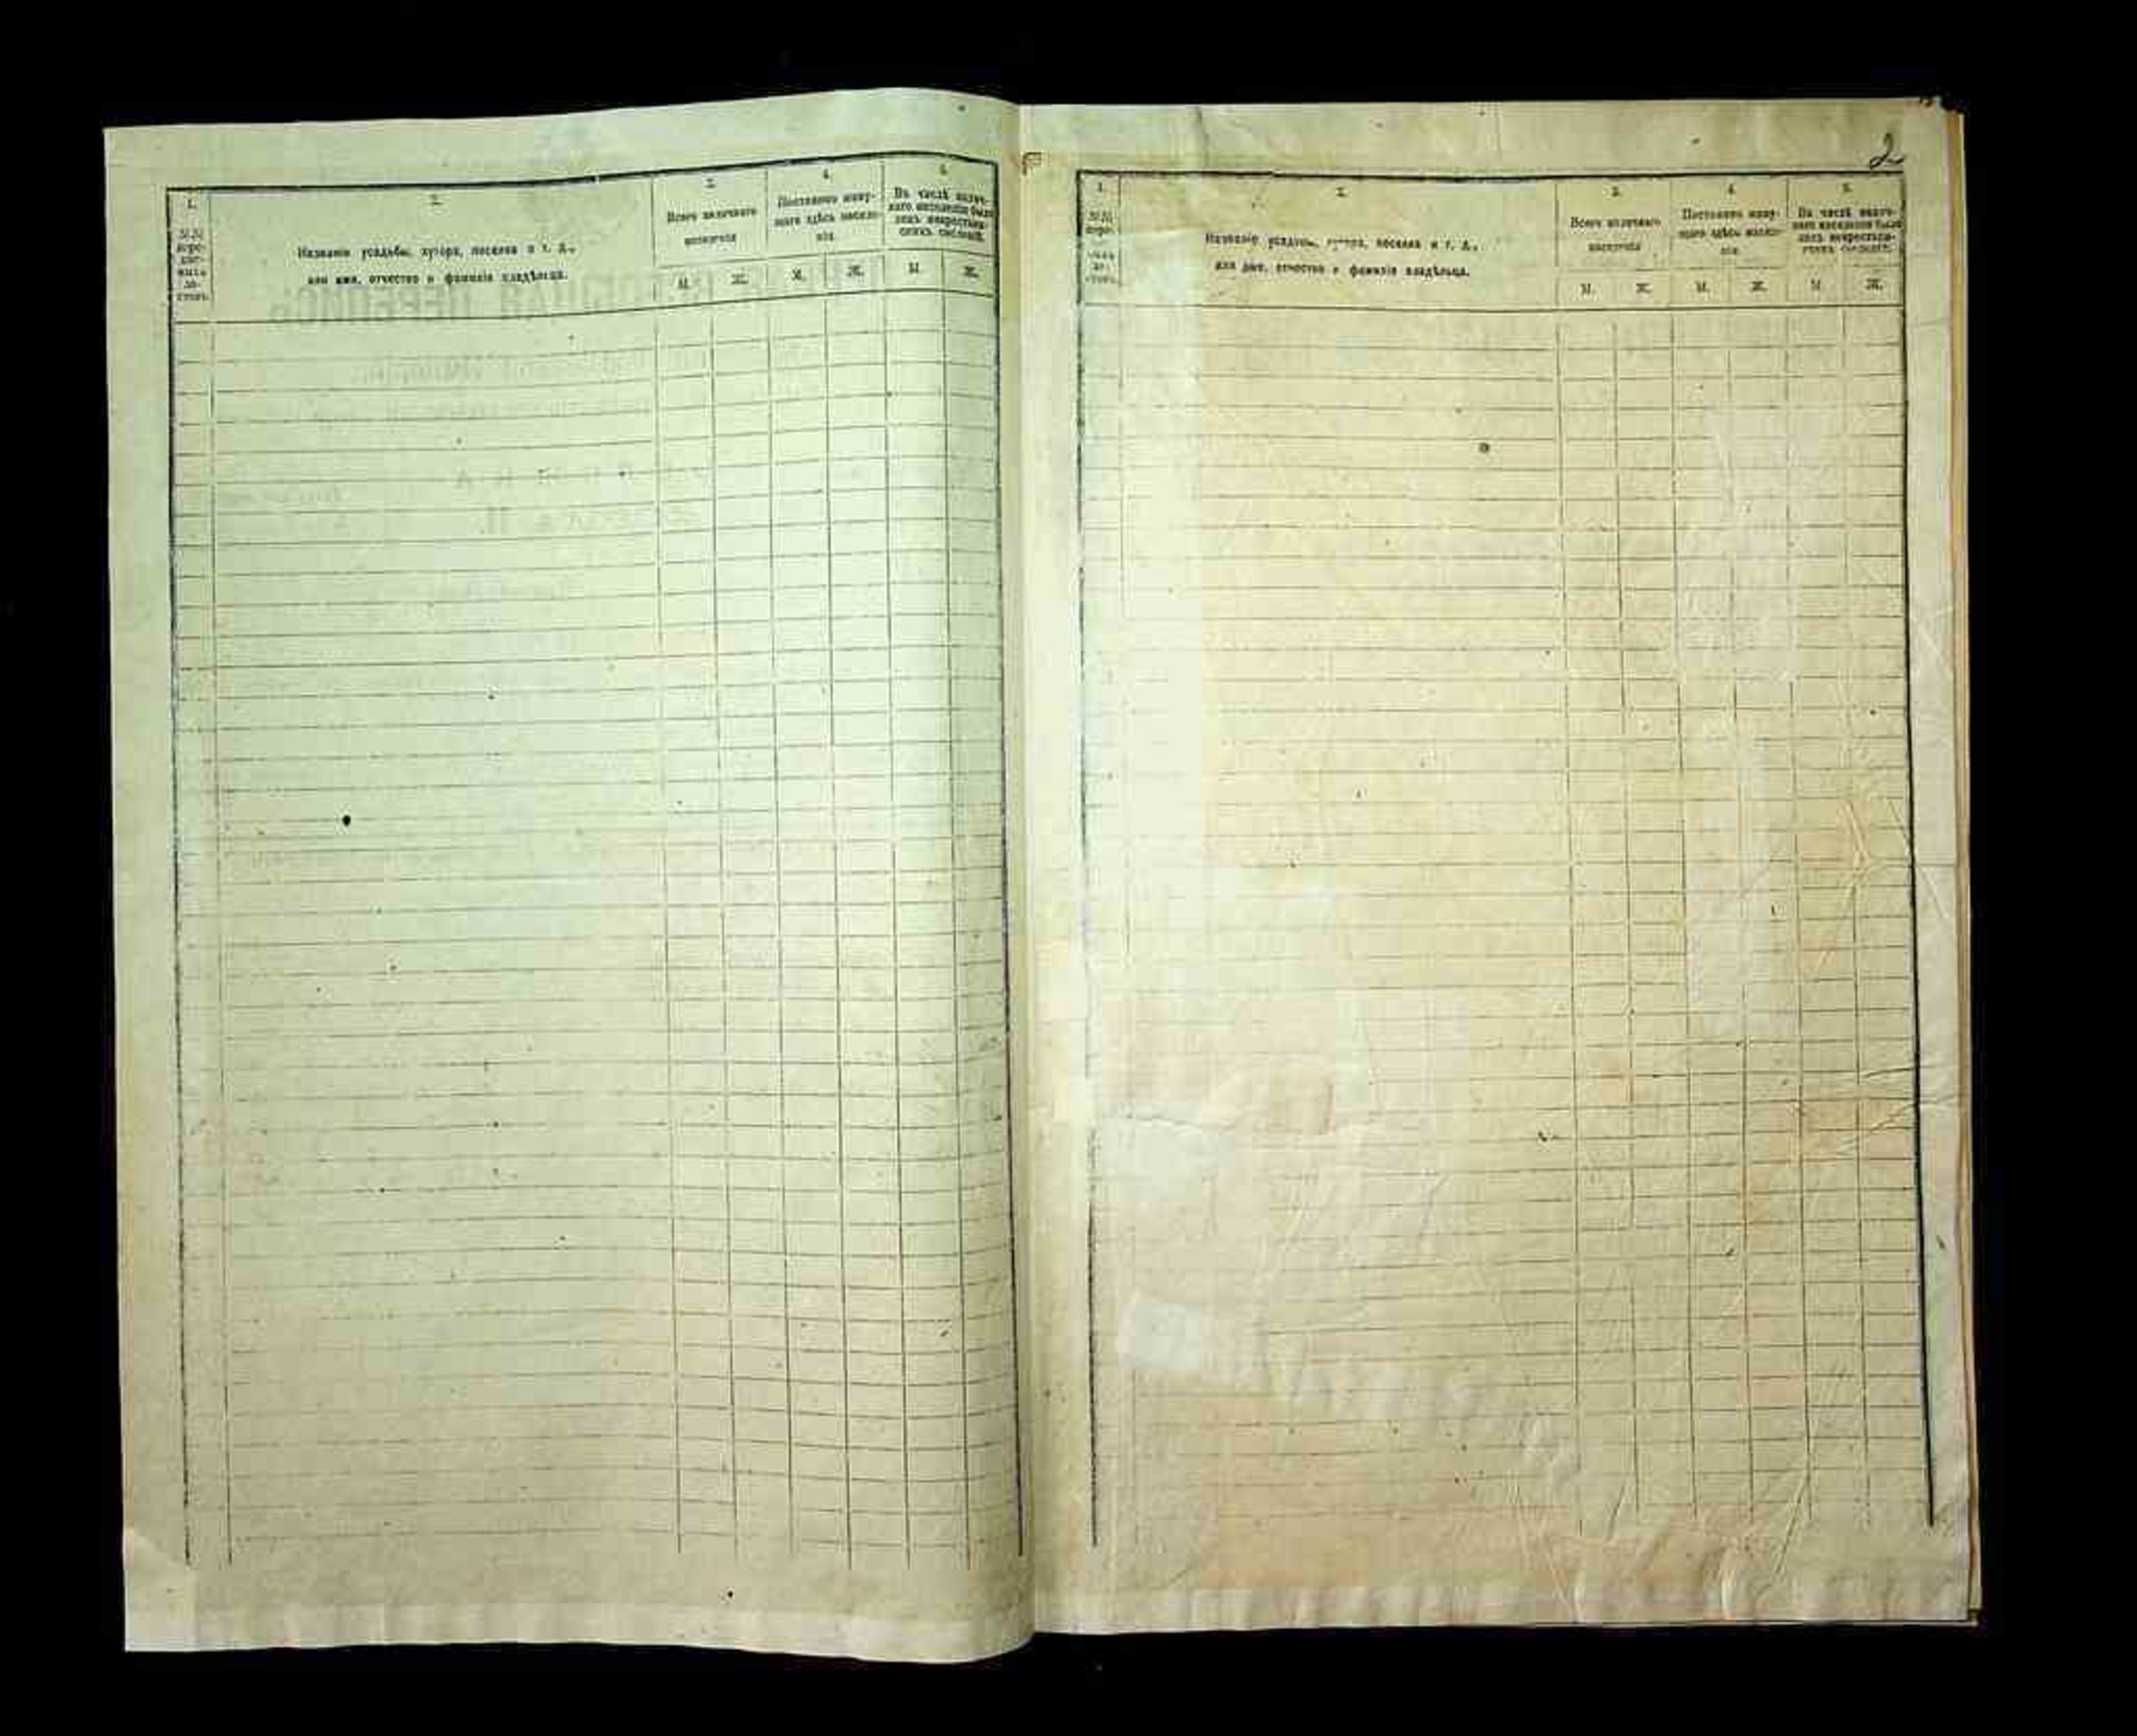 2
1.
№№
пере-
пис-
ныхъ
ли-
стовъ.
2.
Названіе усадьбы, хутора, поселка и т. д.,
или имя, отчество и фамилія владѣльца.
3.
Всего наличнаго
населенія
М. Ж.
4.
Постоянно живу-
щаго здѣсь населе-
нія
М. Ж.
5.
Въ числѣ налич-
наго населенія было
лицъ некрестьян-
скихъ сословій.
М. Ж.
1.
№№
пере-
ныхъ
ли-
стовъ.
2.
Названіе усадьбы, хутора, поселка и т. д.,
или имя, отчество и фамилія владѣльца.
3.
Всего наличнаго
населенія
М. Ж.
4.
Постоянно живу-
щаго здѣсь населе-
нія
М. Ж.
5.
Въ числѣ налич-
наго населенія было
лицъ некрестьян-
скихъ сословій.
М. Ж.